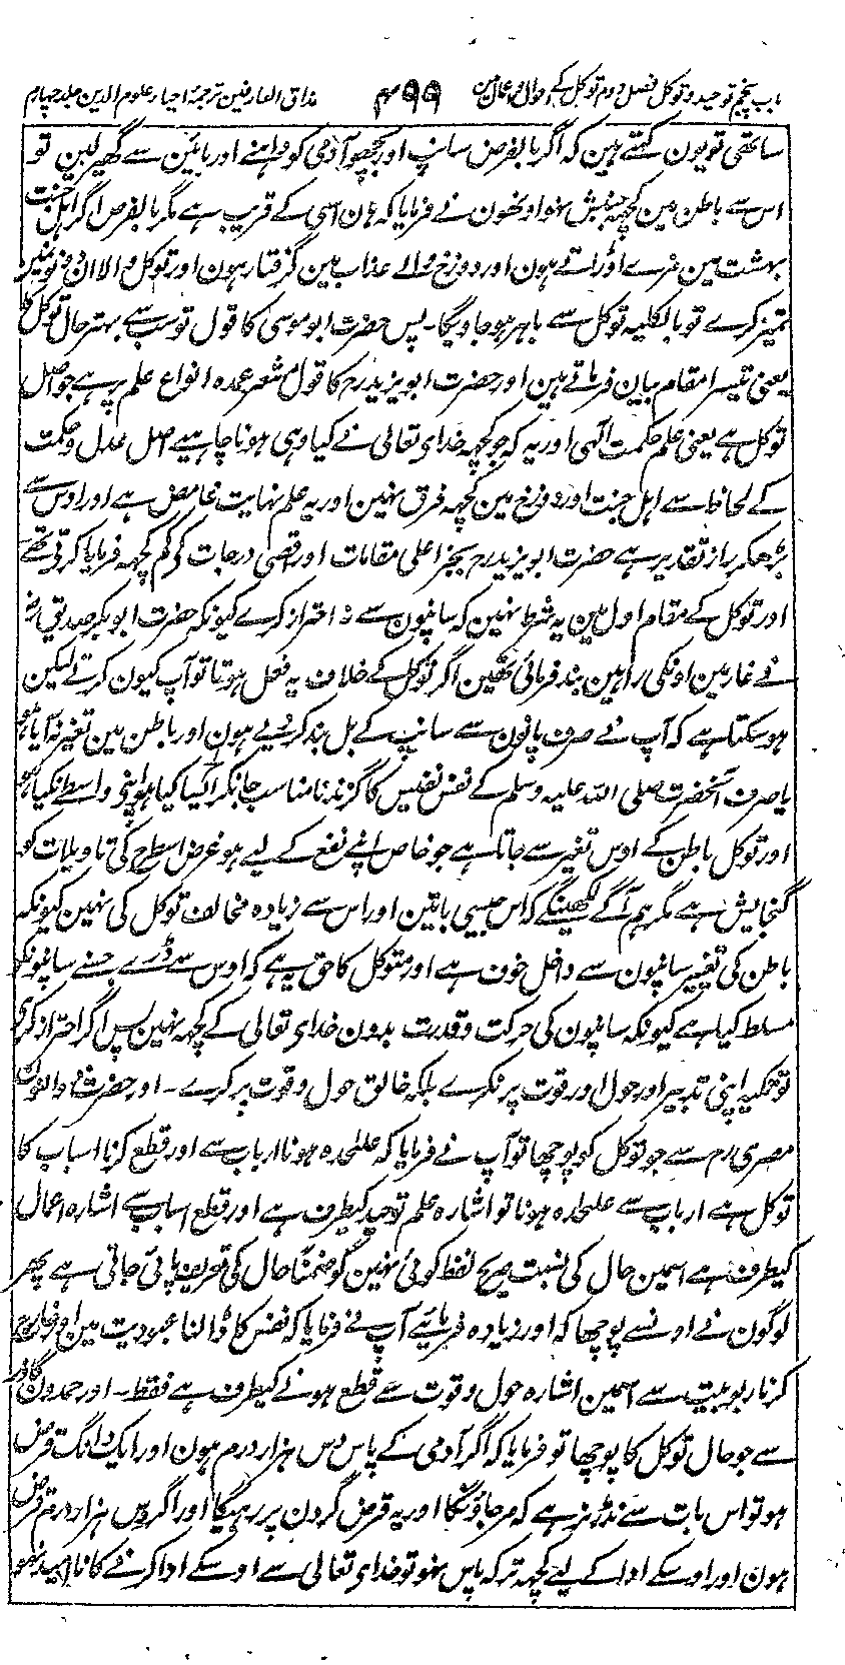 باب پنجم توحید و توکل فصل دوم توکل کے احوال و اعمال مین ۴۹۹ مذاق العارفین ترجمۂ احیاء علوم الدین جلد چہارم
ساتھی تو یون کہتے ہین کہ اگر بالفرض سانپ اور بچھو آدمی کو داہنے اور بائین سے گھیر لین تو
اس سے باطن مین کچھ جنبش نہو اونھون نے فرمایا کہ ہان اسی کے قریب ہے مگر بالفرض اگر اہل جنت
بہشت مین مزے اوڑاتے ہون اور دوزخ والے عذاب مین گرفتار ہون اور توکل والا ان دونو نمین
تمیز کرے تو بالکلیہ توکل سے باہر ہو جاویگا۔ پس حضرت ابو موسی کا قول تو سب سے بہتر حال توکل کا
یعنی تیسرا مقام بیان فرماتے ہین اور حضرت ابو یزید رح کا قول مشعر عمدہ انواع علم پر ہے جو اصل
توکل ہے یعنی علم حکمت الٰہی اور یہ کہ جو کچھ خدای تعالی نے کیا وہی ہونا چاہیے اصل عدل و حکمت
کے لحاظ سے اہل جنت اور دوزخ مین کچھ فرق نہین اور یہ علم نہایت غامض ہے اور اوس سے
بڑھکر راز تقدیر ہے حضرت ابو یزید رح بجز اعلی مقامات اور اقصی درجات کے کم کچھ فرمایا کرتے تھے
اور توکل کے مقام اول مین یہ شرط نہین کہ سانپون سے نہ احتراز کرے کیونکہ حضرت ابو بکر صدیق رض
نے غار مین اونکی راہین بند فرمائی تھین اگر توکل کے خلاف یہ فعل ہوتا تو آپ کیون کرتے لیکن
ہوسکتا ہے کہ آپ نے صرف پانون سے سانپ کے بل بند کر دیے ہون اور باطن مین تغیر نہ آیا ہو
یا صرف آنحضرت صلی اللہ علیہ وسلم کے نفس نفیس کا گزند نامناسب جانکر ایسا کیا ہو اپنے واسطے نکیا ہو
اور توکل باطن کے اوس تغیر سے جاتا ہے جو خاص اپنے نفع کے لیے ہو غرض اسطرح کی تاویلات کو
گنجایش ہے مگر ہم آگے لکھینگے کہ اس جیسی باتین اور اس سے زیادہ مخالف توکل کی نہین کیونکہ
باطن کی تغییر سانپون سے داخل خوف ہے اور متوکل کا حق یہ ہے کہ اوس سے ڈرے جسنے سانپونکو
مسلط کیا ہے کیونکہ سانپون کی حرکت و قدرت بدون خدای تعالی کے کچھ نہین پس اگر احتراز کرے
تو تکیہ اپنی تدبیر اور حول اور قوت پر نکرے بلکہ خالق حول و قوت پر کرے۔ اور حضرت ذوالنون
مصری رح سے جو توکل کو پوچھا تو آپ نے فرمایا کہ علحدہ ہونا ارباب سے اور قطع کرنا اسباب کا
توکل ہے ارباب سے علحدہ ہونا تو اشارہ علم توحید کیطرف ہے اور قطع اسباب سے اشارہ اعمال
کیطرف ہے اسمین حال کی نسبت صریح لفظ کوئی نہین گو ضمناً حال کی تعریف پائی جاتی ہے پھر
لوگون نے اونسے پوچھا کہ اور زیادہ فرمائیے آپ نے فرمایا کہ نفس کا ڈالنا عبودیت مین اور خارج
کرنا ربوبیت سے اسمین اشارہ حول و قوت سے قطع ہونے کیطرف ہے فقط۔ اور حمدون
سے جو حال توکل کا پوچھا تو فرمایا کہ اگر آدمی کے پاس دس ہزار درم ہون اور ایک دانگ قرض
ہو تو اس بات سے نڈر نرہے کہ مرجاؤنگا اور یہ قرض گردن پر رہیگا اور اگر دس ہزار درم قرض
ہون اور اوسکے ادا کے لیے کچھ ترکہ پاس نہو تو خدای تعالی سے اوسکے ادا کرنے کا ناامید نہو